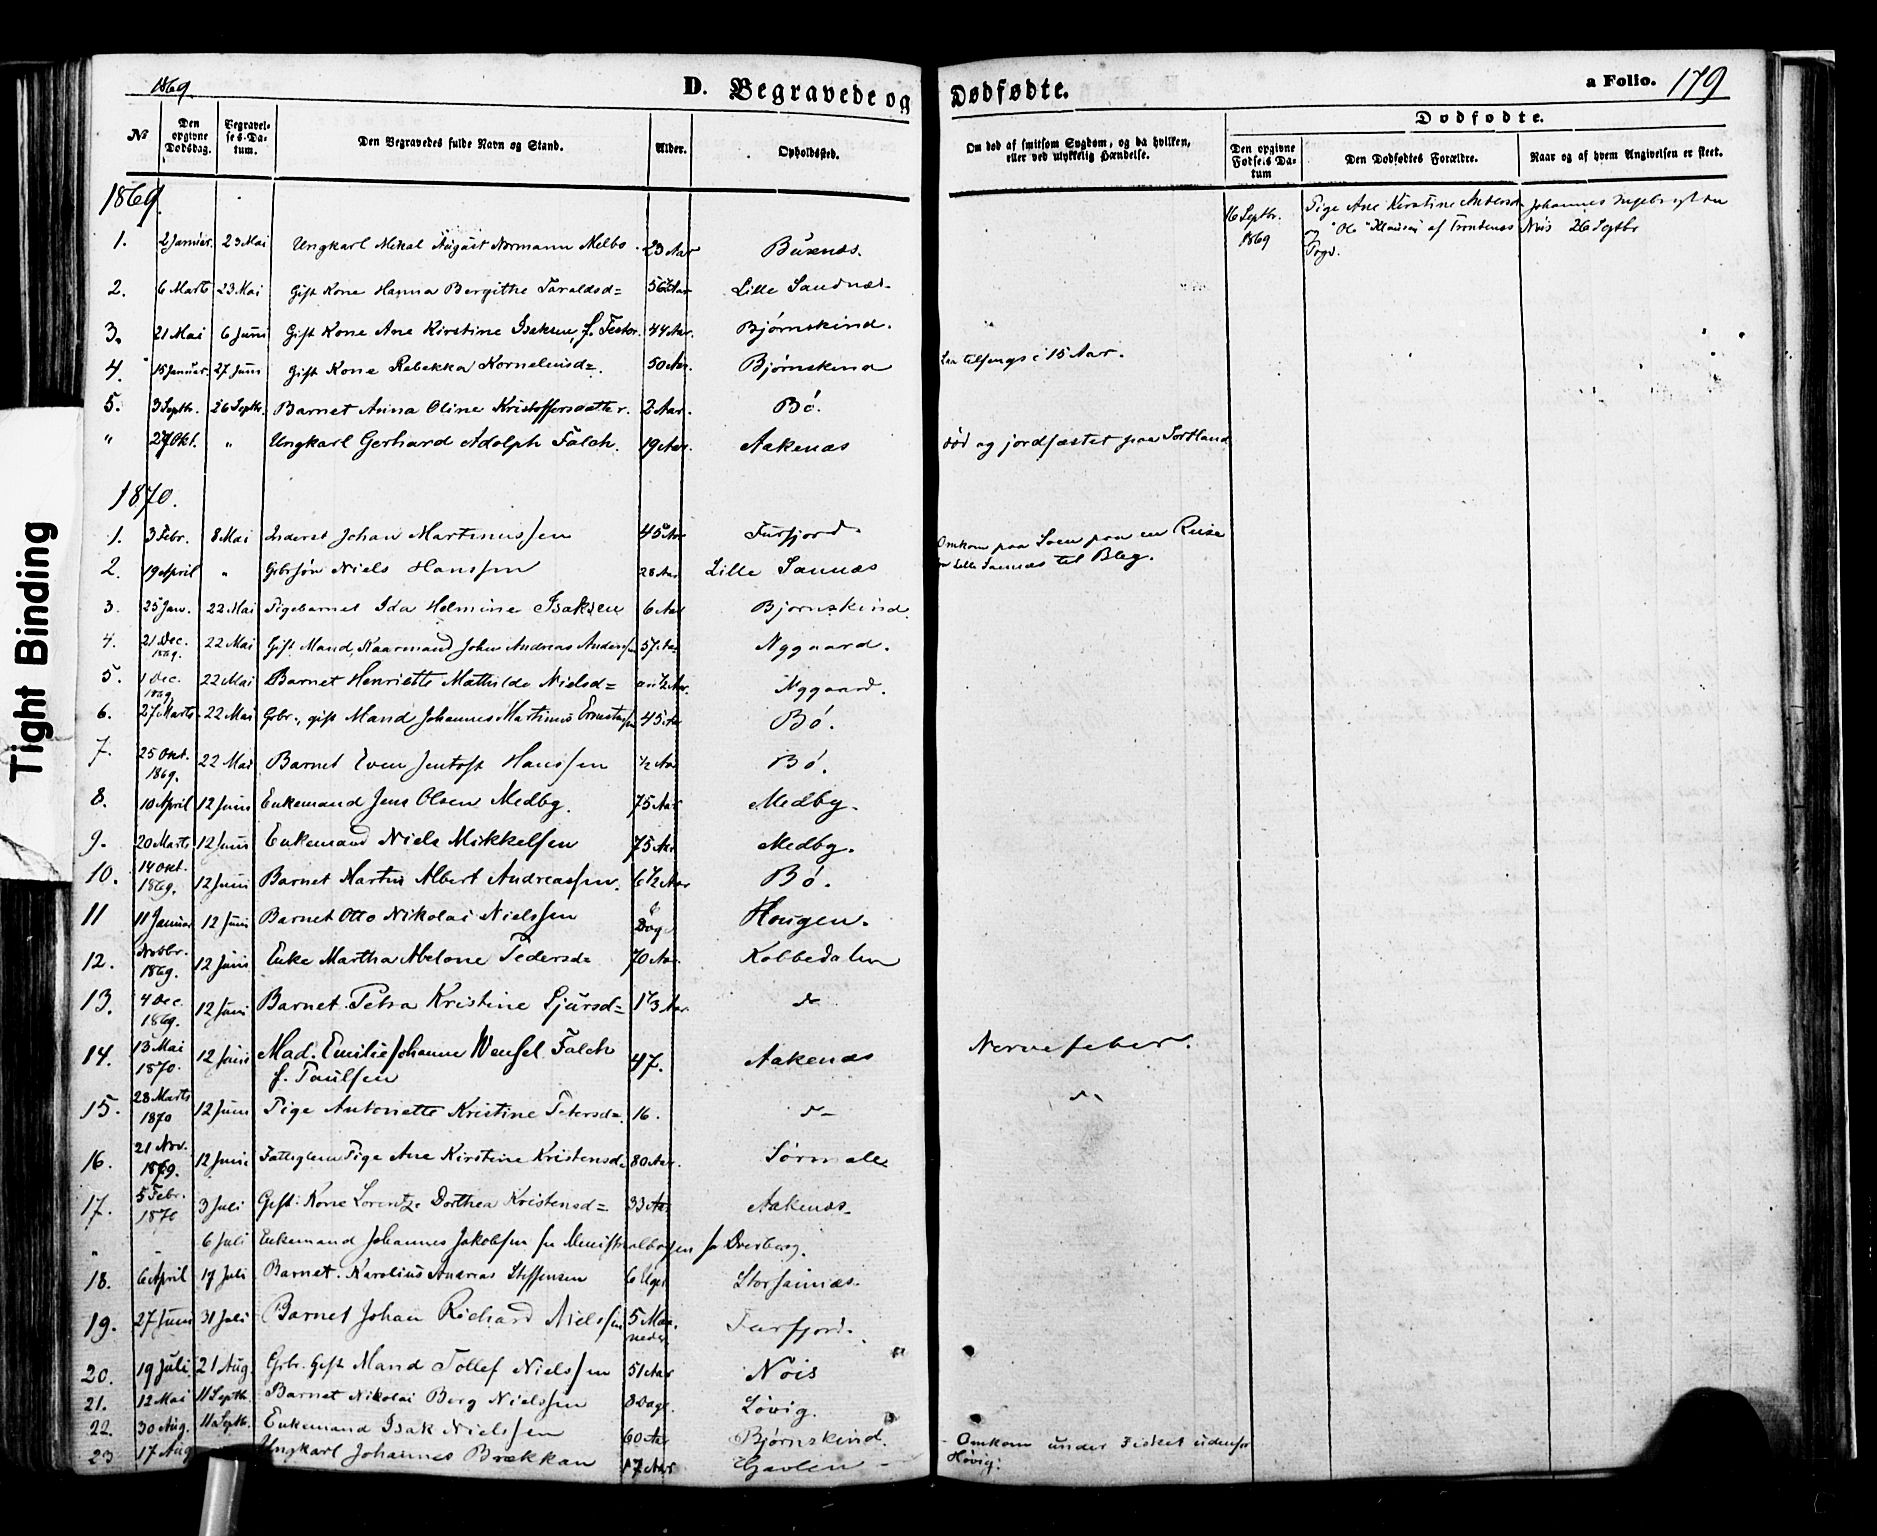 1869.
D. Begravede og Dødfødte.
a Folio. 179
Tight Binding
№
Den opgivne Dødsdag.
Begravelses-Datum.
Den Begravedes fulde Navn og Stand.
Alder.
Opholdssted.
Om død af smitsom Sygdom, og da hvilken, eller ved ulykkelig Hændelse.
Dødfødte.
Den opgivne Fødsels Datum
Den Dødfødtes Forældre.
Naar og af hvem Angivelsen er skeet.
1869.
16 Septbr. 1869 Pige Ane Kirstine Anders Johannes Ingebrigtsen
og Ole Klausen af Trondenæs Nøis 26 Septbr
Prgd.
1. 2 Januar. 23 Mai Ungkarl Mikal August Normann Melbo 23 Aar Buxnæs.
2. 6 Marts 23 Mai Gift Kone Hanna Bergithe Taraldsd= 56 Aar Lille Sandnæs
3. 21 Mai 6 Juni Gift Kone Ane Kirstine Isaksen, f. Peder. 44 Aar. Bjørnskind.
4. 15 Januar. 27 Juni Gift Kone Rebekka Korneliusd=. 50 Aar. Bjørnskind Laa tilsengs i 15 Aar.
5. 3 Septb. 26 Septb. Barnet Anna Oline Kristoffersdatter. 2 Aar. Bø.
" 27 Okt. " Ungkarl Gerhard Adolph Falch. 19 Aar. Aakenæs død og jordfæstet paa Sortland
1870.
1. 3 Febr. 8 Mai Inderst Johan Martinussen 45 Aar Furfjord Omkom paa Søen paa en Reise
2. 19 April " Grbrsøn Niels Hanssen 28 Aar Lille Sannæs fra Lille Sannæs til Bleg.
3. 25 Jan. 22 Mai Pigebarnet Ida Helmine Isaksen 6 Aar Bjørnskind
4. 21 Dec. 1869. 22 Mai Gift Mand, Kaarmand John Andreas Anderssen 57 Aar Nygaard.
5. 1 Dec. 1869 22 Mai Barnet Henriette Mathilde Nielsd= 1/2 Aar. Nygaard.
6. 27 Marts 22 Mai Grbr., gift Mand Johannes Martinus Ernstsen 45 Aar Bø.
7. 25 Okt. 1869. 22 Mai Barnet Even Jentoft Hanssen 1/2 Aar Bø.
8. 10 April 12 Juni Enkemand Jens Olsen Medby. 75 Aar Medby.
9. 20 Marts 12 Juni Enkemand Niels Mikkelsen 75 Aar Medby.
10. 14 Okt. 1869. 12 Juni Barnet Martin Albert Andreassen. 6 1/2 Aar Bø.
11 11 Januar 12 Juni Barnet Otto Nikolai Nielssen 6 Dage Hougen.
12. Novbr. 1869. 12 Juni Enke Martha Abelone Pedersd= 70 Aar. Kobbedalen
13. 4 Dec. 1869. 12 Juni Barnet Petra Kristine Sjursd= 1 1/3 Aar. do
14. 13 Mai 1870. 12 Juni Mad. Emilie Johanne Wensel Falch 47. Aakenæs Nervefeber.
f. Paulsen
15. 28 Marts 1870 12 Juni Pige Antonette Kristine Petersd= 16. do do
16. 21 Nov. 1869. 12 Juni Fattiglem Pige Ane Kirstine Kristensd= 80 Aar. Sørmale
17. 5 Febr. 1870 3 Juli Gift Kone Lorentze Dorthea Kristensd= 33 Aar Aakenæs
" 6 Juli Enkemand Johannes Jakobsen fra Dverberg.
18. 6 April 17 Juli Barnet Karolius Andreas Steffensen 6 Uger Storsannæs.
19. 27 Juni 31 Juli Barnet Johan Richard Nielssen 5 Maaneder Furfjord.
20. 19 Juli 21 Aug. Grbr. Gift Mand Tollef Nielssen 51 Aar Nøis
21. 12 Mai 11 Septb. Barnet Nikolai Berg Nielssen 8 Dage. Lovig.
22. 30 Aug. 11 Septb. Enkemand Isak Nielssen 60 Aar Bjørnskind.
23 17 Aug Ungkarl Johannes Brækkan 17 Aar Gavlen Omkom under Fiskeri udenfor
Høvig.